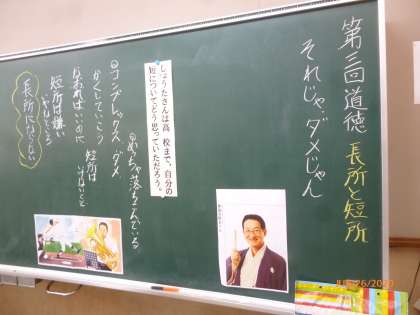 第三回道徳 長所と短所
それじゃダメじゃん
しょうたさんは高校まで、自分の
短についてどう思っていただろう。
◎めちゃ落ちこんでいる
◎コンプレックス ダメ
かくしていこう
なおればいいのに
短所は
いけないこと
短所は嫌い
長所にならない